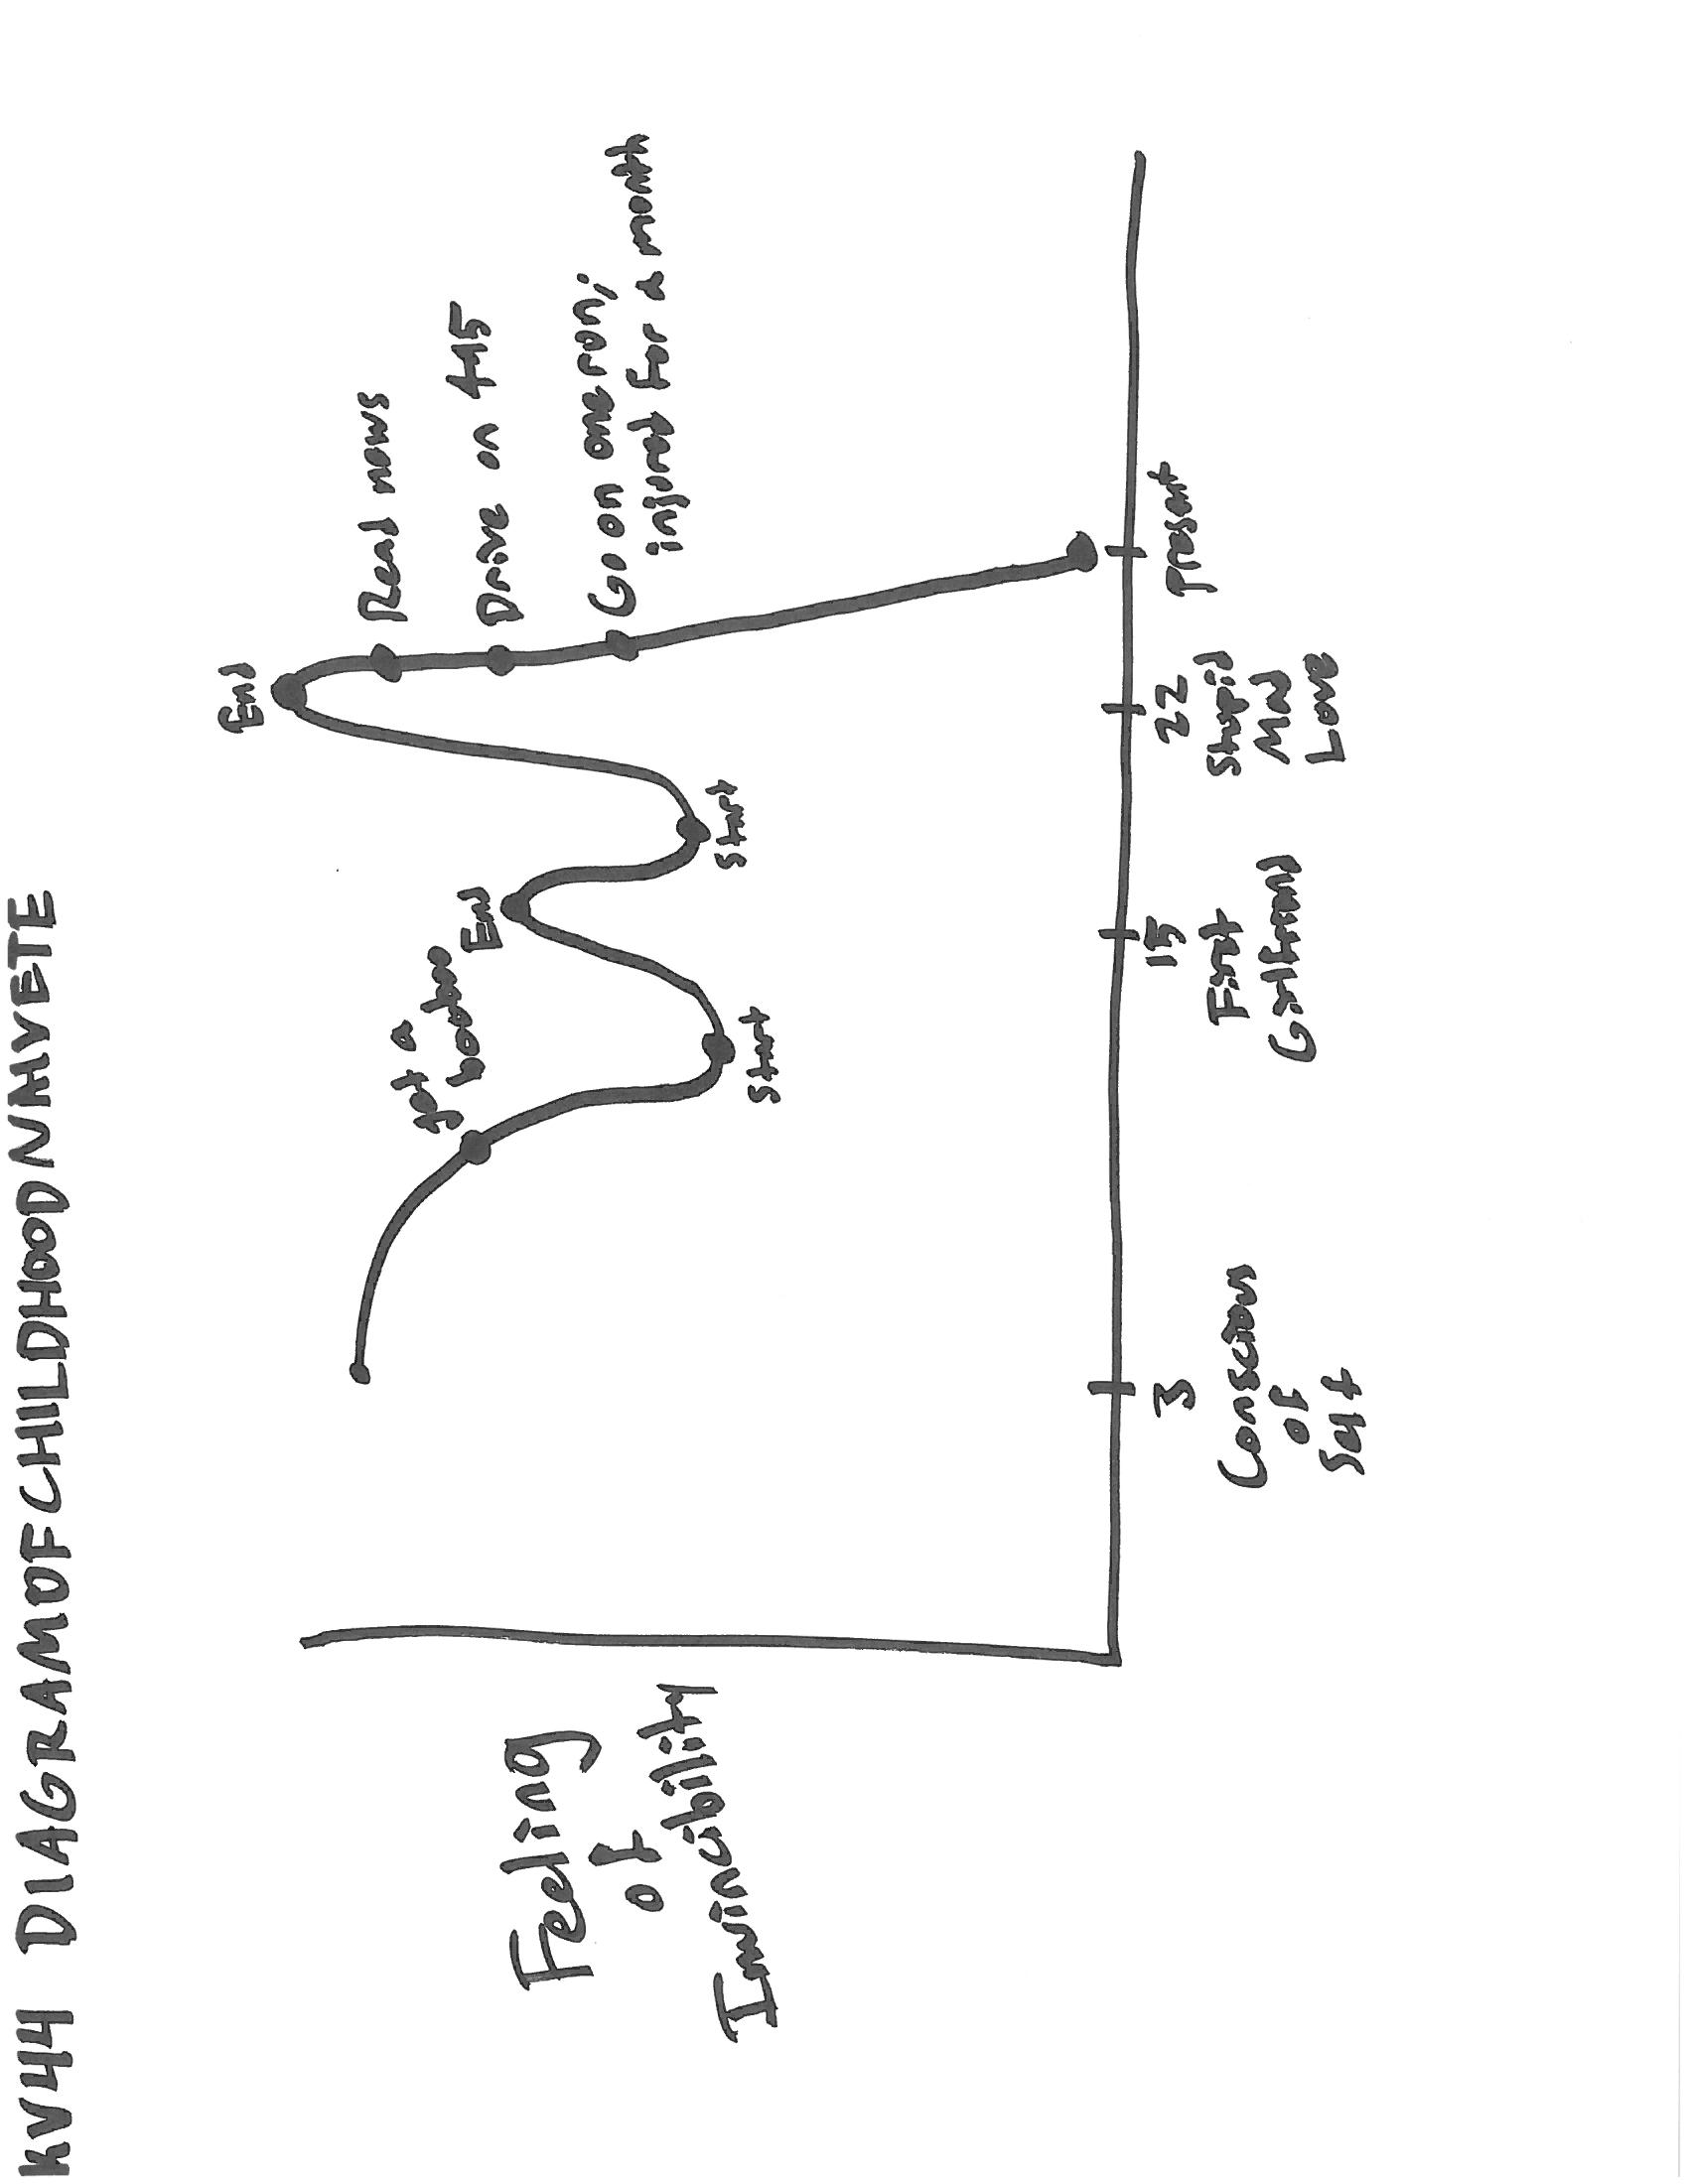 KV44 DIAGRAM OF CHILDHOOD NAIVETE
Feeling
of
Invincibility
got a
booboo
Start
End
Start
End
Read news
Drive on 405
Go on one run;
injured for a month
3
Conscious
of
Self
15
First
Girlfriend
22
Stupid
Mad
Love
Present